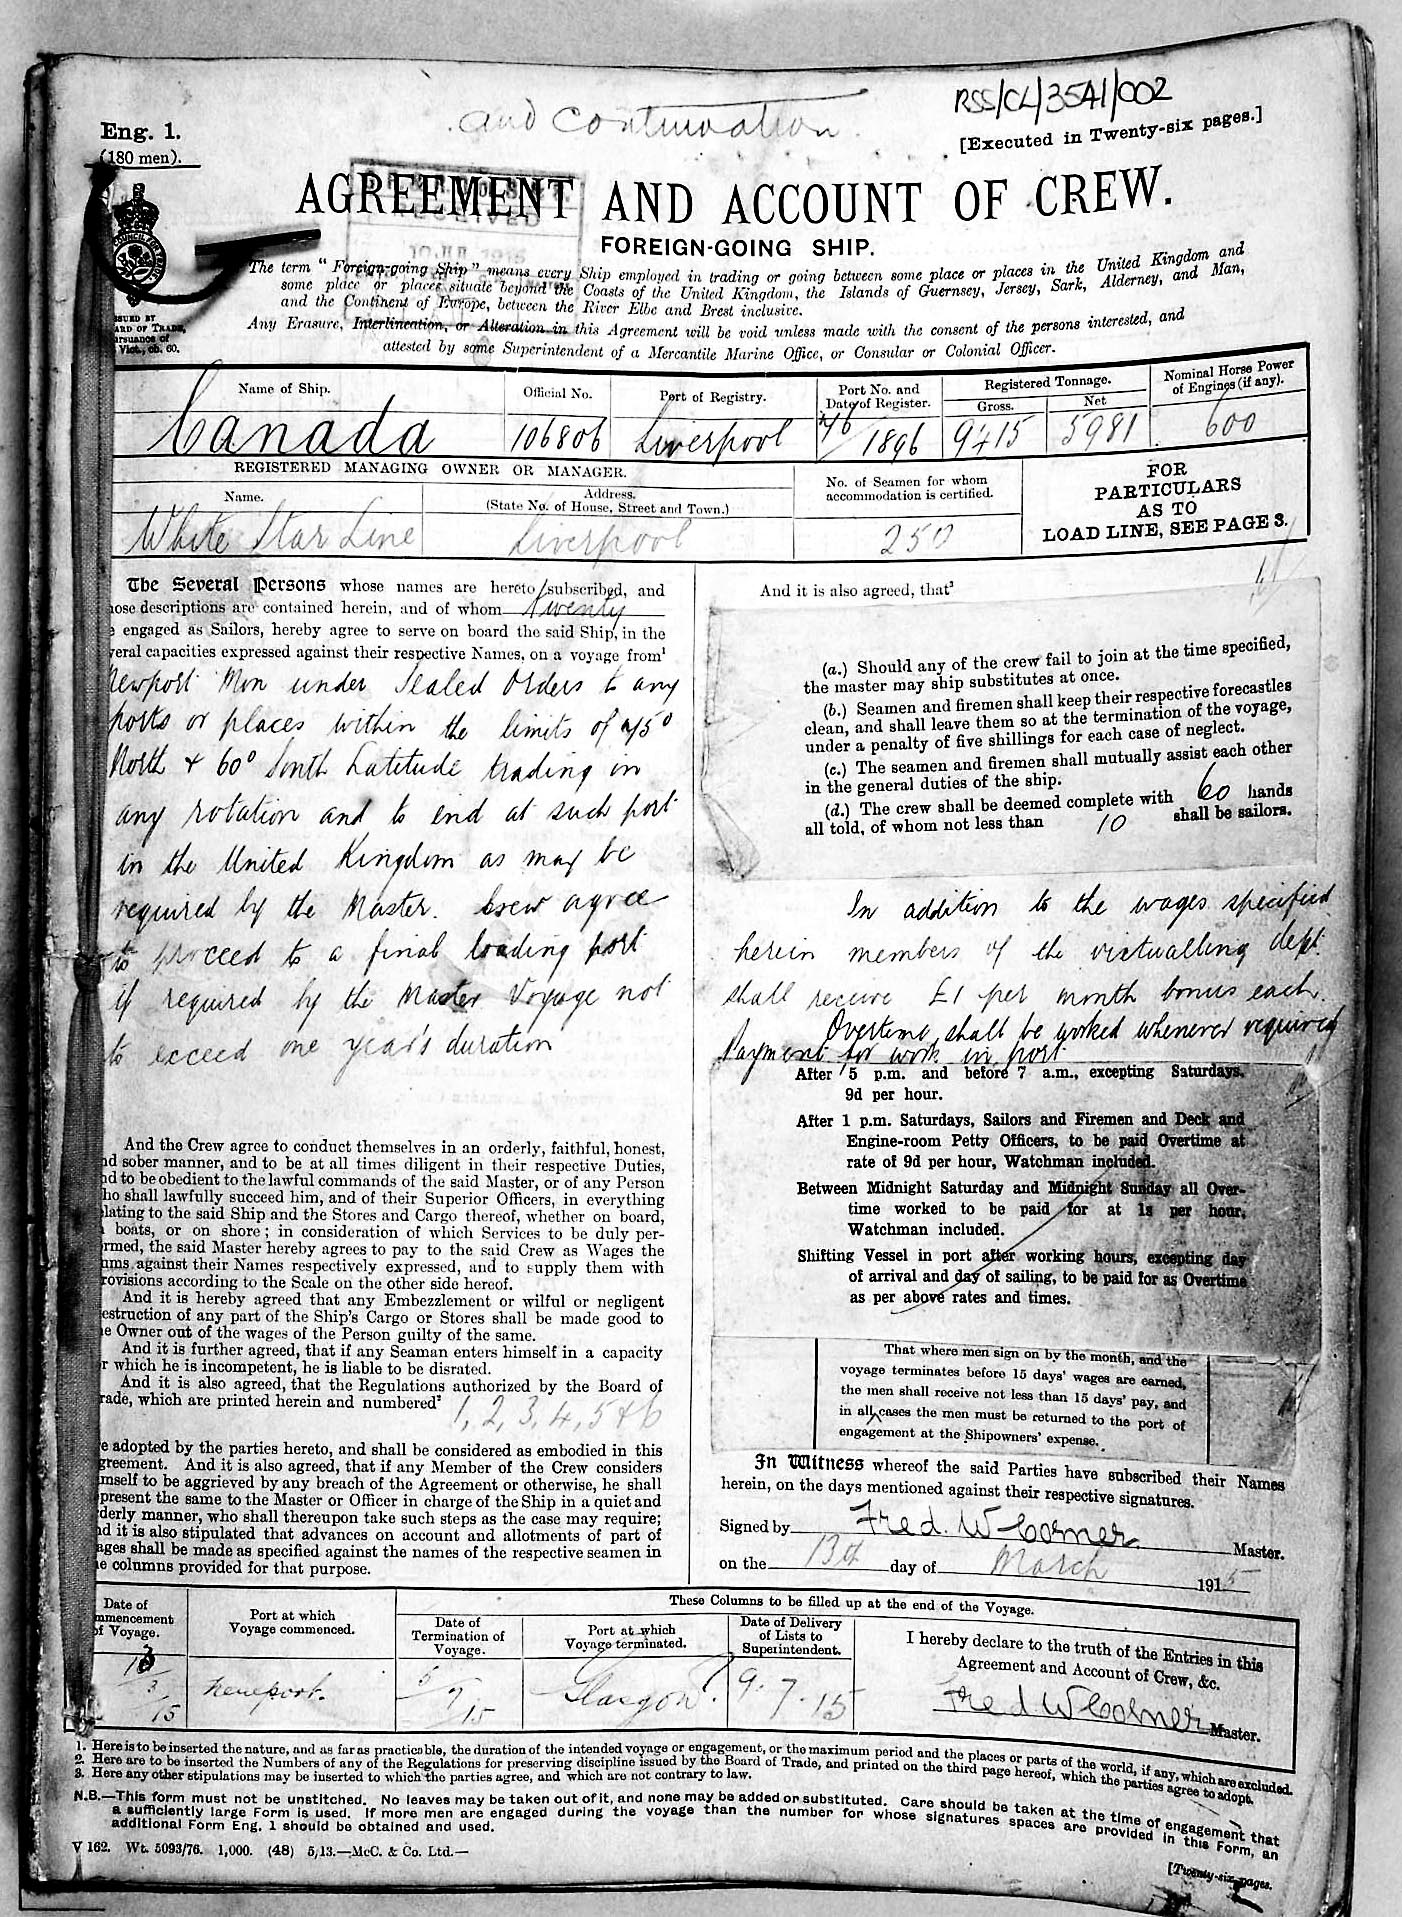 and continuation
RSS/CL/3541/002
[Executed in Twenty-six pages.]
Eng. 1.
(180 men).
AGREEMENT AND ACCOUNT OF CREW.
FOREIGN-GOING SHIP.
RECEIVED
The term "Foreign-going Ship" means every Ship employed in trading or going between some place or places in the United Kingdom and
some place or places situate beyond the Coasts of the United Kingdom, the Islands of Guernsey, Jersey, Sark, Alderney, and Man,
and the Continent of Europe, between the River Elbe and Brest inclusive.
Any Erasure, Interlineation, or Alteration in this Agreement will be void unless made with the consent of the persons interested, and
attested by some Superintendent of a Mercantile Marine Office, or Consular or Colonial Officer.
SSUED BY
ARD OF TRADE,
rsuance of
Vict., ch. 60.
Name of Ship.
Official No.
Port of Registry.
Port No. and
Date of Register.
Registered Tonnage.
Gross.
Net
Nominal Horse Power
of Engines (if any).
Canada
106806
Liverpool
46/1896
9415
5981
600
REGISTERED MANAGING OWNER OR MANAGER.
Name.
Address.
(State No. of House, Street and Town.)
No. of Seamen for whom
accommodation is certified.
FOR
PARTICULARS
AS TO
LOAD LINE, SEE PAGE 3.
White Star Line
Liverpool
250
The Several Persons whose names are hereto subscribed, and
hose descriptions are contained herein, and of whom Twenty
e engaged as Sailors, hereby agree to serve on board the said Ship, in the
veral capacities expressed against their respective Names, on a voyage from¹
Newport Mon under Sealed Orders to any
ports or places within the limits of 75°
North & 60° South Latitude trading in
any rotation and to end at such port
in the United Kingdom as may be
required by the Master. Crew agree
to proceed to a final loading port
if required by the Master Voyage not
to exceed one year's duration
And the Crew agree to conduct themselves in an orderly, faithful, honest,
nd sober manner, and to be at all times diligent in their respective Duties,
nd to be obedient to the lawful commands of the said Master, or of any Person
ho shall lawfully succeed him, and of their Superior Officers, in everything
lating to the said Ship and the Stores and Cargo thereof, whether on board,
boats, or on shore; in consideration of which Services to be duly per-
rmed, the said Master hereby agrees to pay to the said Crew as Wages the
ums against their Names respectively expressed, and to supply them with
rovisions according to the Scale on the other side hereof.
And it is hereby agreed that any Embezzlement or wilful or negligent
estruction of any part of the Ship's Cargo or Stores shall be made good to
e Owner out of the wages of the Person guilty of the same.
And it is further agreed, that if any Seaman enters himself in a capacity
r which he is incompetent, he is liable to be disrated.
And it is also agreed, that the Regulations authorized by the Board of
rade, which are printed herein and numbered² 1, 2, 3, 4, 5 & 6
e adopted by the parties hereto, and shall be considered as embodied in this
greement. And it is also agreed, that if any Member of the Crew considers
mself to be aggrieved by any breach of the Agreement or otherwise, he shall
present the same to the Master or Officer in charge of the Ship in a quiet and
derly manner, who shall thereupon take such steps as the case may require;
nd it is also stipulated that advances on account and allotments of part of
ages shall be made as specified against the names of the respective seamen in
e columns provided for that purpose.
And it is also agreed, that³
(a.) Should any of the crew fail to join at the time specified,
the master may ship substitutes at once.
(b.) Seamen and firemen shall keep their respective forecastles
clean, and shall leave them so at the termination of the voyage,
under a penalty of five shillings for each case of neglect.
(c.) The seamen and firemen shall mutually assist each other
in the general duties of the ship.
(d.) The crew shall be deemed complete with 60 hands
all told, of whom not less than 10 shall be sailors.
In addition to the wages specified
herein members of the victualling dept.
shall receive £1 per month bonus each.
Overtime shall be worked whenever required
Payment for work in port
After 5 p.m. and before 7 a.m., excepting Saturdays,
9d per hour.
After 1 p.m. Saturdays, Sailors and Firemen and Deck and
Engine-room Petty Officers, to be paid Overtime at
rate of 9d per hour, Watchman included.
Between Midnight Saturday and Midnight Sunday all Over-
time worked to be paid for at 1s per hour,
Watchman included.
Shifting Vessel in port after working hours, excepting day
of arrival and day of sailing, to be paid for as Overtime
as per above rates and times.
That where men sign on by the month, and the
voyage terminates before 15 days' wages are earned,
the men shall receive not less than 15 days' pay, and
in all cases the men must be returned to the port of
engagement at the Shipowners' expense.
In Witness whereof the said Parties have subscribed their Names
herein, on the days mentioned against their respective signatures.
Signed by Fred. W Corner Master.
on the 13th day of March 1915
Date of
mmencement
f Voyage.
Port at which
Voyage commenced.
These Columns to be filled up at the end of the Voyage.
Date of
Termination of
Voyage.
Port at which
Voyage terminated.
Date of Delivery
of Lists to
Superintendent.
I hereby declare to the truth of the Entries in this
Agreement and Account of Crew, &c.
13/3/15
Newport.
5/7/15
Glasgow.
9.7.15
Fred W Corner Master.
1. Here is to be inserted the nature, and as far as practicable, the duration of the intended voyage or engagement, or the maximum period and the places or parts of the world, if any, which are excluded.
2. Here are to be inserted the Numbers of any of the Regulations for preserving discipline issued by the Board of Trade, and printed on the third page hereof, which the parties agree to adopt.
3. Here any other stipulations may be inserted to which the parties agree, and which are not contrary to law.
N.B.—This form must not be unstitched. No leaves may be taken out of it, and none may be added or substituted. Care should be taken at the time of engagement that
a sufficiently large Form is used. If more men are engaged during the voyage than the number for whose signatures spaces are provided in this Form, an
additional Form Eng. 1 should be obtained and used.
V 162. Wt. 5093/76. 1,000. (48) 5/13.—McC. & Co. Ltd.—
[Twenty-six pages.